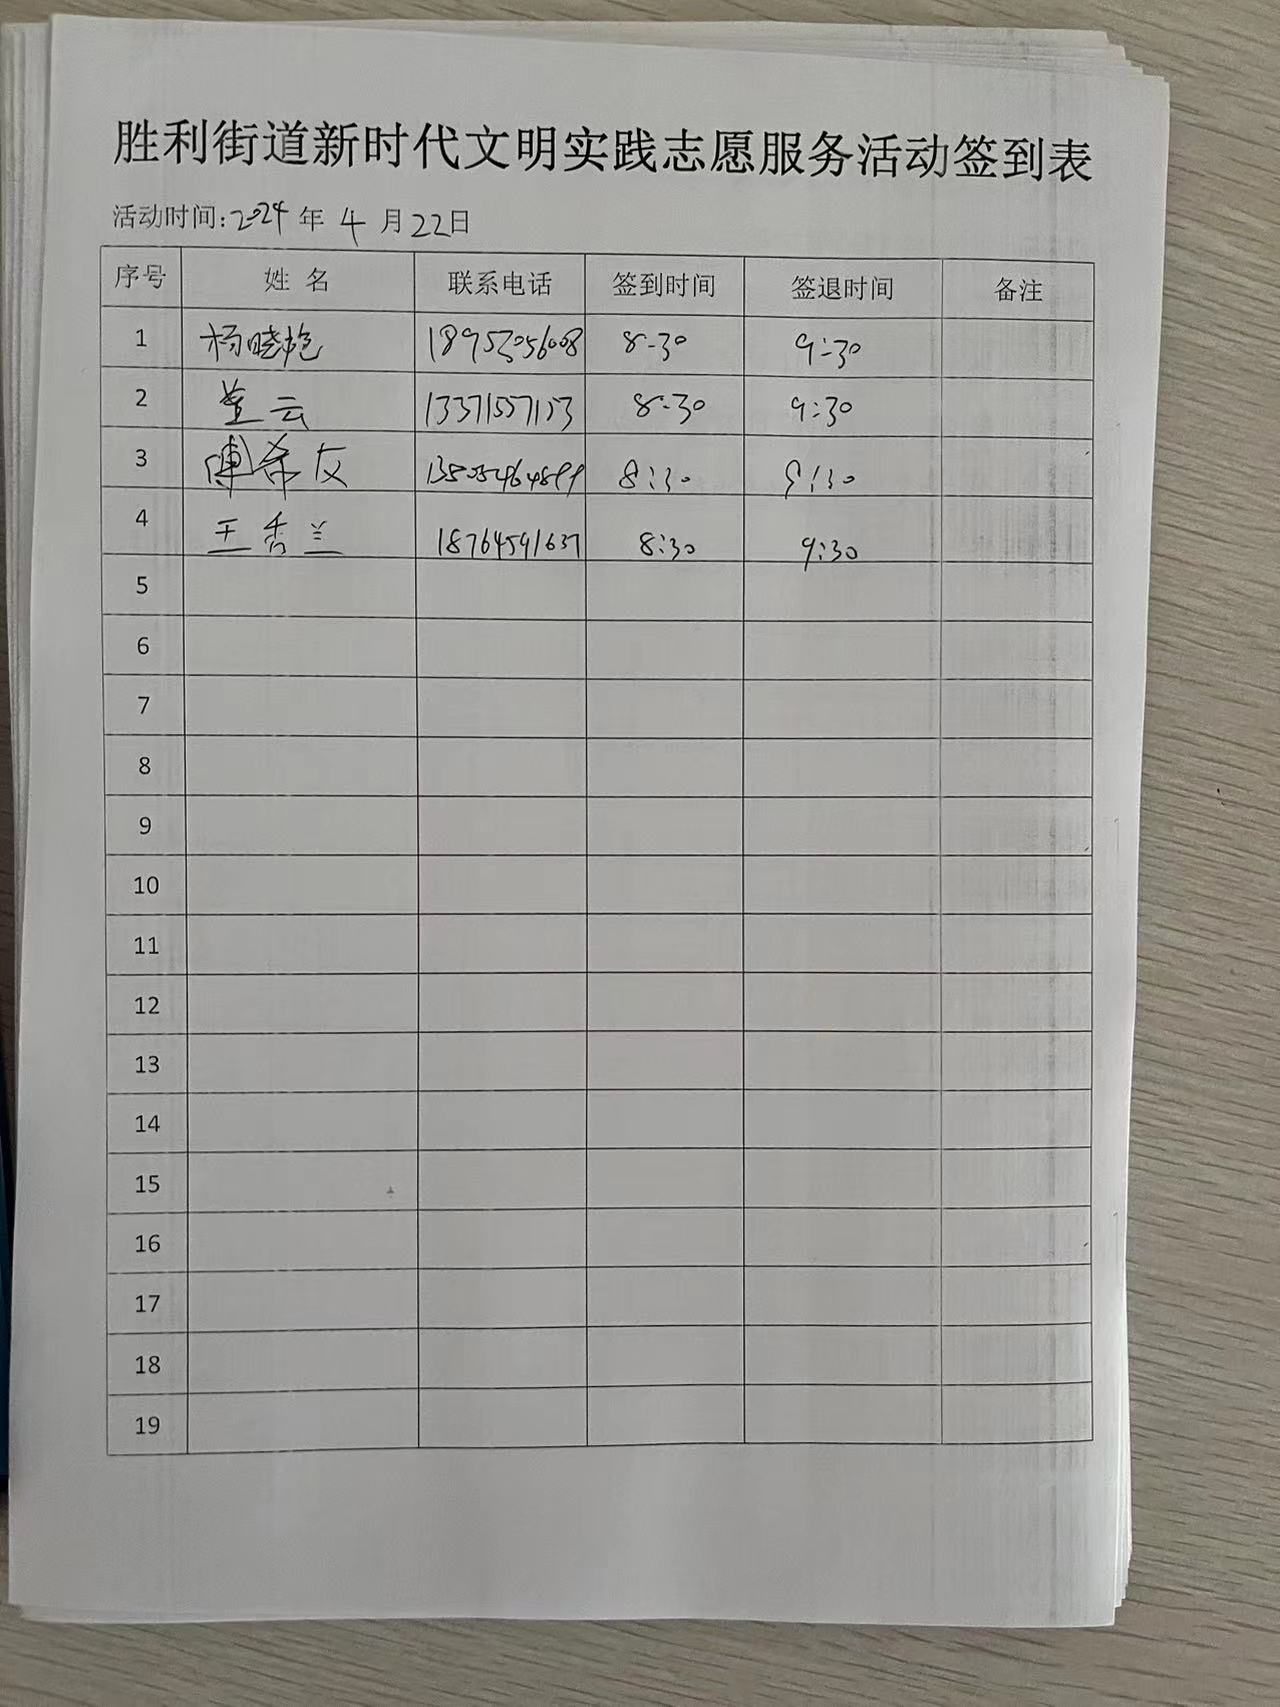 胜利街道新时代文明实践志愿服务活动签到表
活动时间:2024年4月22日
序号 姓名 联系电话 签到时间 签退时间 备注
1 杨晓艳 18953056008 8-30 9:30
2 董云 13371557153 8-30 9:30
3 陈希友 8:30 9:30
4 王秀兰 18764591637 8:30 9:30
5
6
7
8
9
10
11
12
13
14
15
16
17
18
19